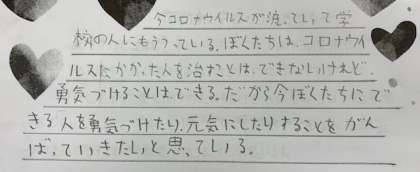 今コロナウイルスが渡っていって学
校の人にもうつっている。ぼくたちは、コロナウイ
ルスにかかった人を治すことは、できないけれど
勇気づけることは、できる。だから今ぼくたちにで
きる人を勇気づけたり、元気にしたりすることをがん
ばっていきたいと思っている。